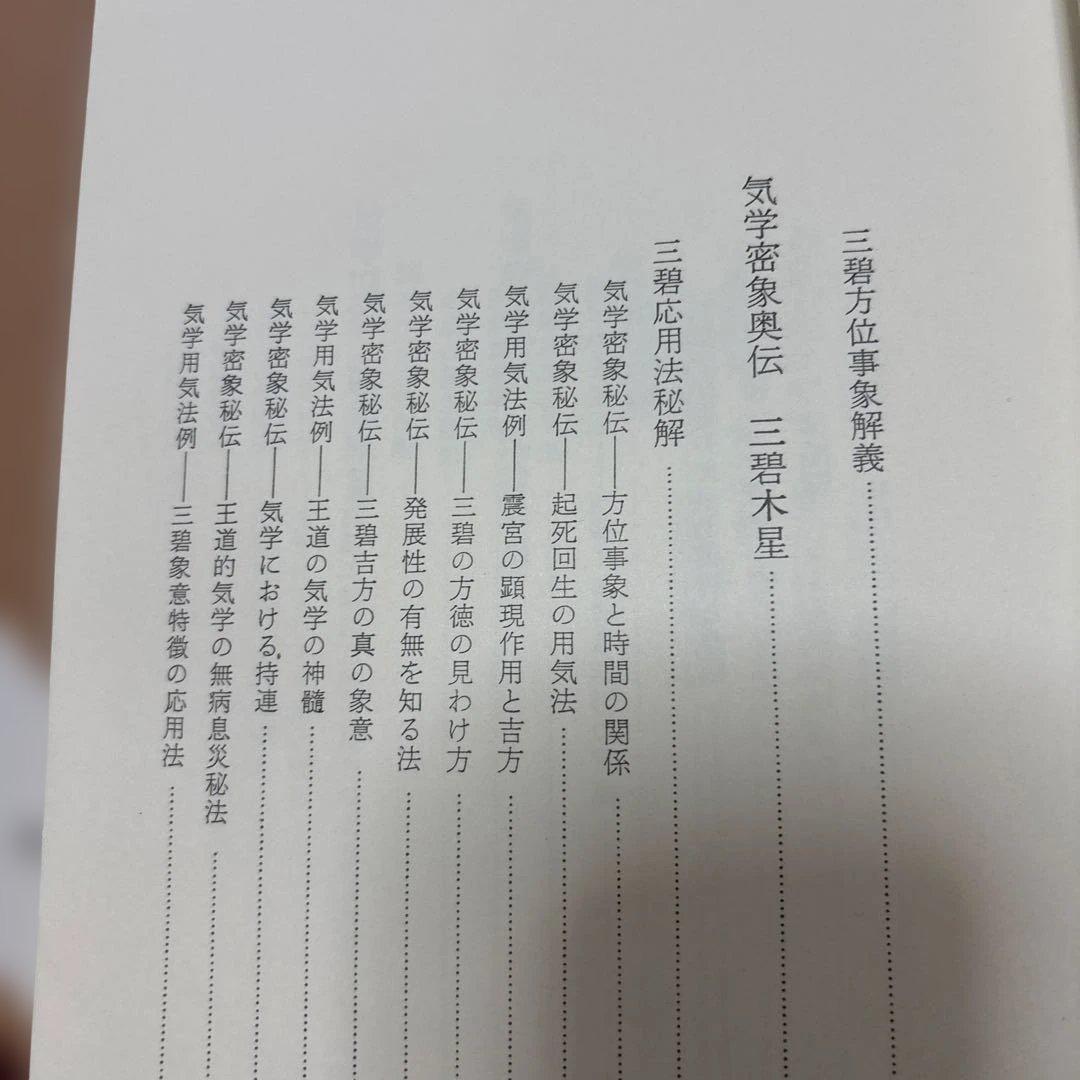 三碧方位事象解義…………………………
気学密象奥伝　三碧木星…………………………
三碧応用法秘解…………………………
気学密象秘伝――方位事象と時間の関係…………………………
気学密象秘伝――起死回生の用気法…………………………
気学用気法例――震宮の顕現作用と吉方…………………………
気学密象秘伝――三碧の方徳の見わけ方…………………………
気学密象秘伝――発展性の有無を知る法…………………………
気学密象秘伝――三碧吉方の真の象意…………………………
気学用気法例――王道の気学の神髄…………………………
気学密象秘伝――気学における持連…………………………
気学密象秘伝――王道的気学の無病息災秘法…………………………
気学用気法例――三碧象意特徴の応用法…………………………